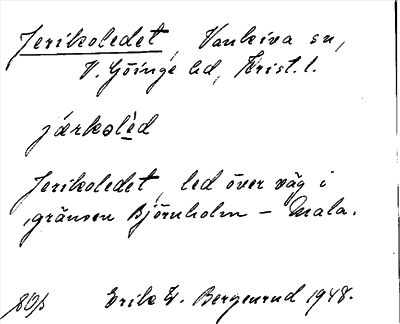 Jerikoledet, Vankiva sn,
V. Göinge hd, Krist. l.
jærkəlèd
Jerikoledet, led över väg i
gränsen Björnholm – Mala.
Erik W. Bergenrud 1948.